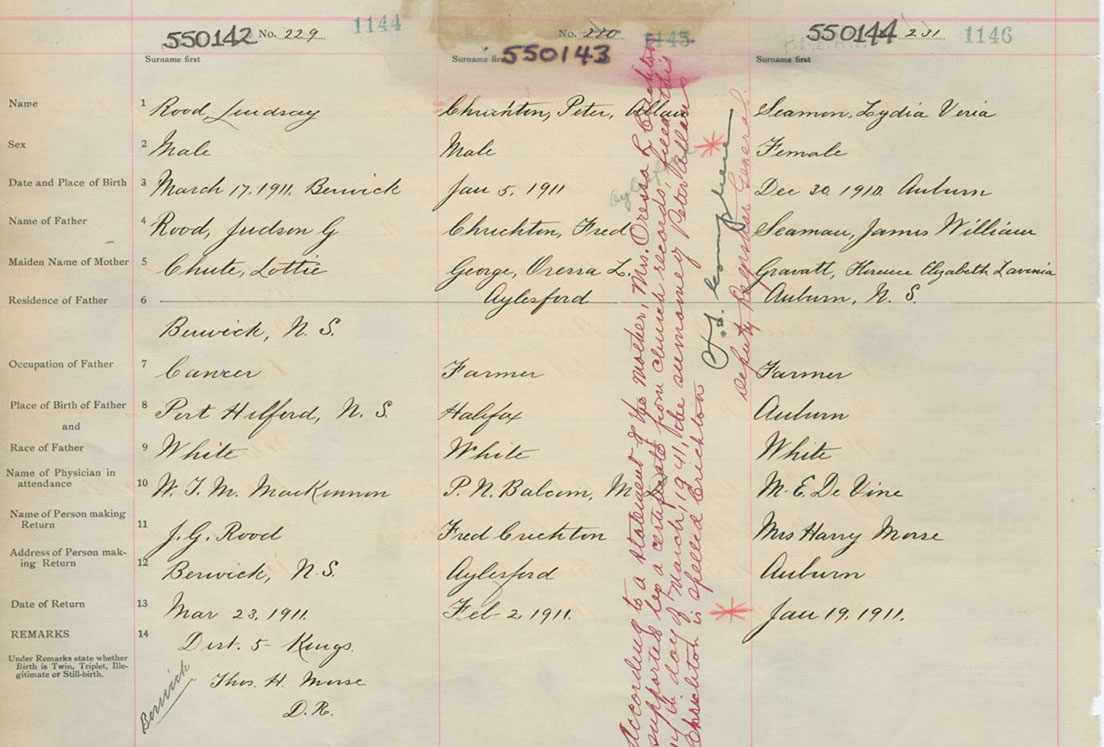 550142 No. 229 1144
Surname first
550143 No. 230 1145
Surname first
550144 231 1146
Surname first
Name 1 Rood, Lindsay Chrichton, Peter, Allan Seamon, Lydia Veria
Sex 2 Male Male Female
Date and Place of Birth 3 March 17. 1911. Berwick Jan 5, 1911 Dec 30, 1910. Auburn
Name of Father 4 Rood, Judson G Chrichton, Fred Seaman, James William
Maiden Name of Mother 5 Chute, Lottie George, Oressa L. Gravatt, Florence Elizabeth Lavinia
Residence of Father 6 Aylesford Auburn, N. S.
Berwick, N. S.
Occupation of Father 7 Farmer Farmer
Place of Birth of Father 8 Port Hilford, N. S. Halifax Auburn
and
Race of Father 9 White White White
Name of Physician in
attendance 10 W. T. M. MacKinnon P. N. Balcom, M. E. De Vine
Name of Person making
Return 11 J. G. Rood Fred Crichton Mrs Harry Morse
Address of Person mak-
ing Return 12 Berwick, N. S. Aylesford Auburn
Date of Return 13 Mar 23, 1911. Feb 2, 1911. Jan 19, 1911.
REMARKS 14 Dist. 5 - Kings.
Under Remarks state whether
Birth is Twin, Triplet, Ille-
gitimate or Still-birth.
Thos. H. Morse
D. R.
Berwick
According to a statement of the mother, Mrs. Oressa L Crichton
supported by a certificate from church records, filed this
day of March, 1941, the surname of Peter Allan
Chrichton is spelled Crichton
Deputy Registrar General.